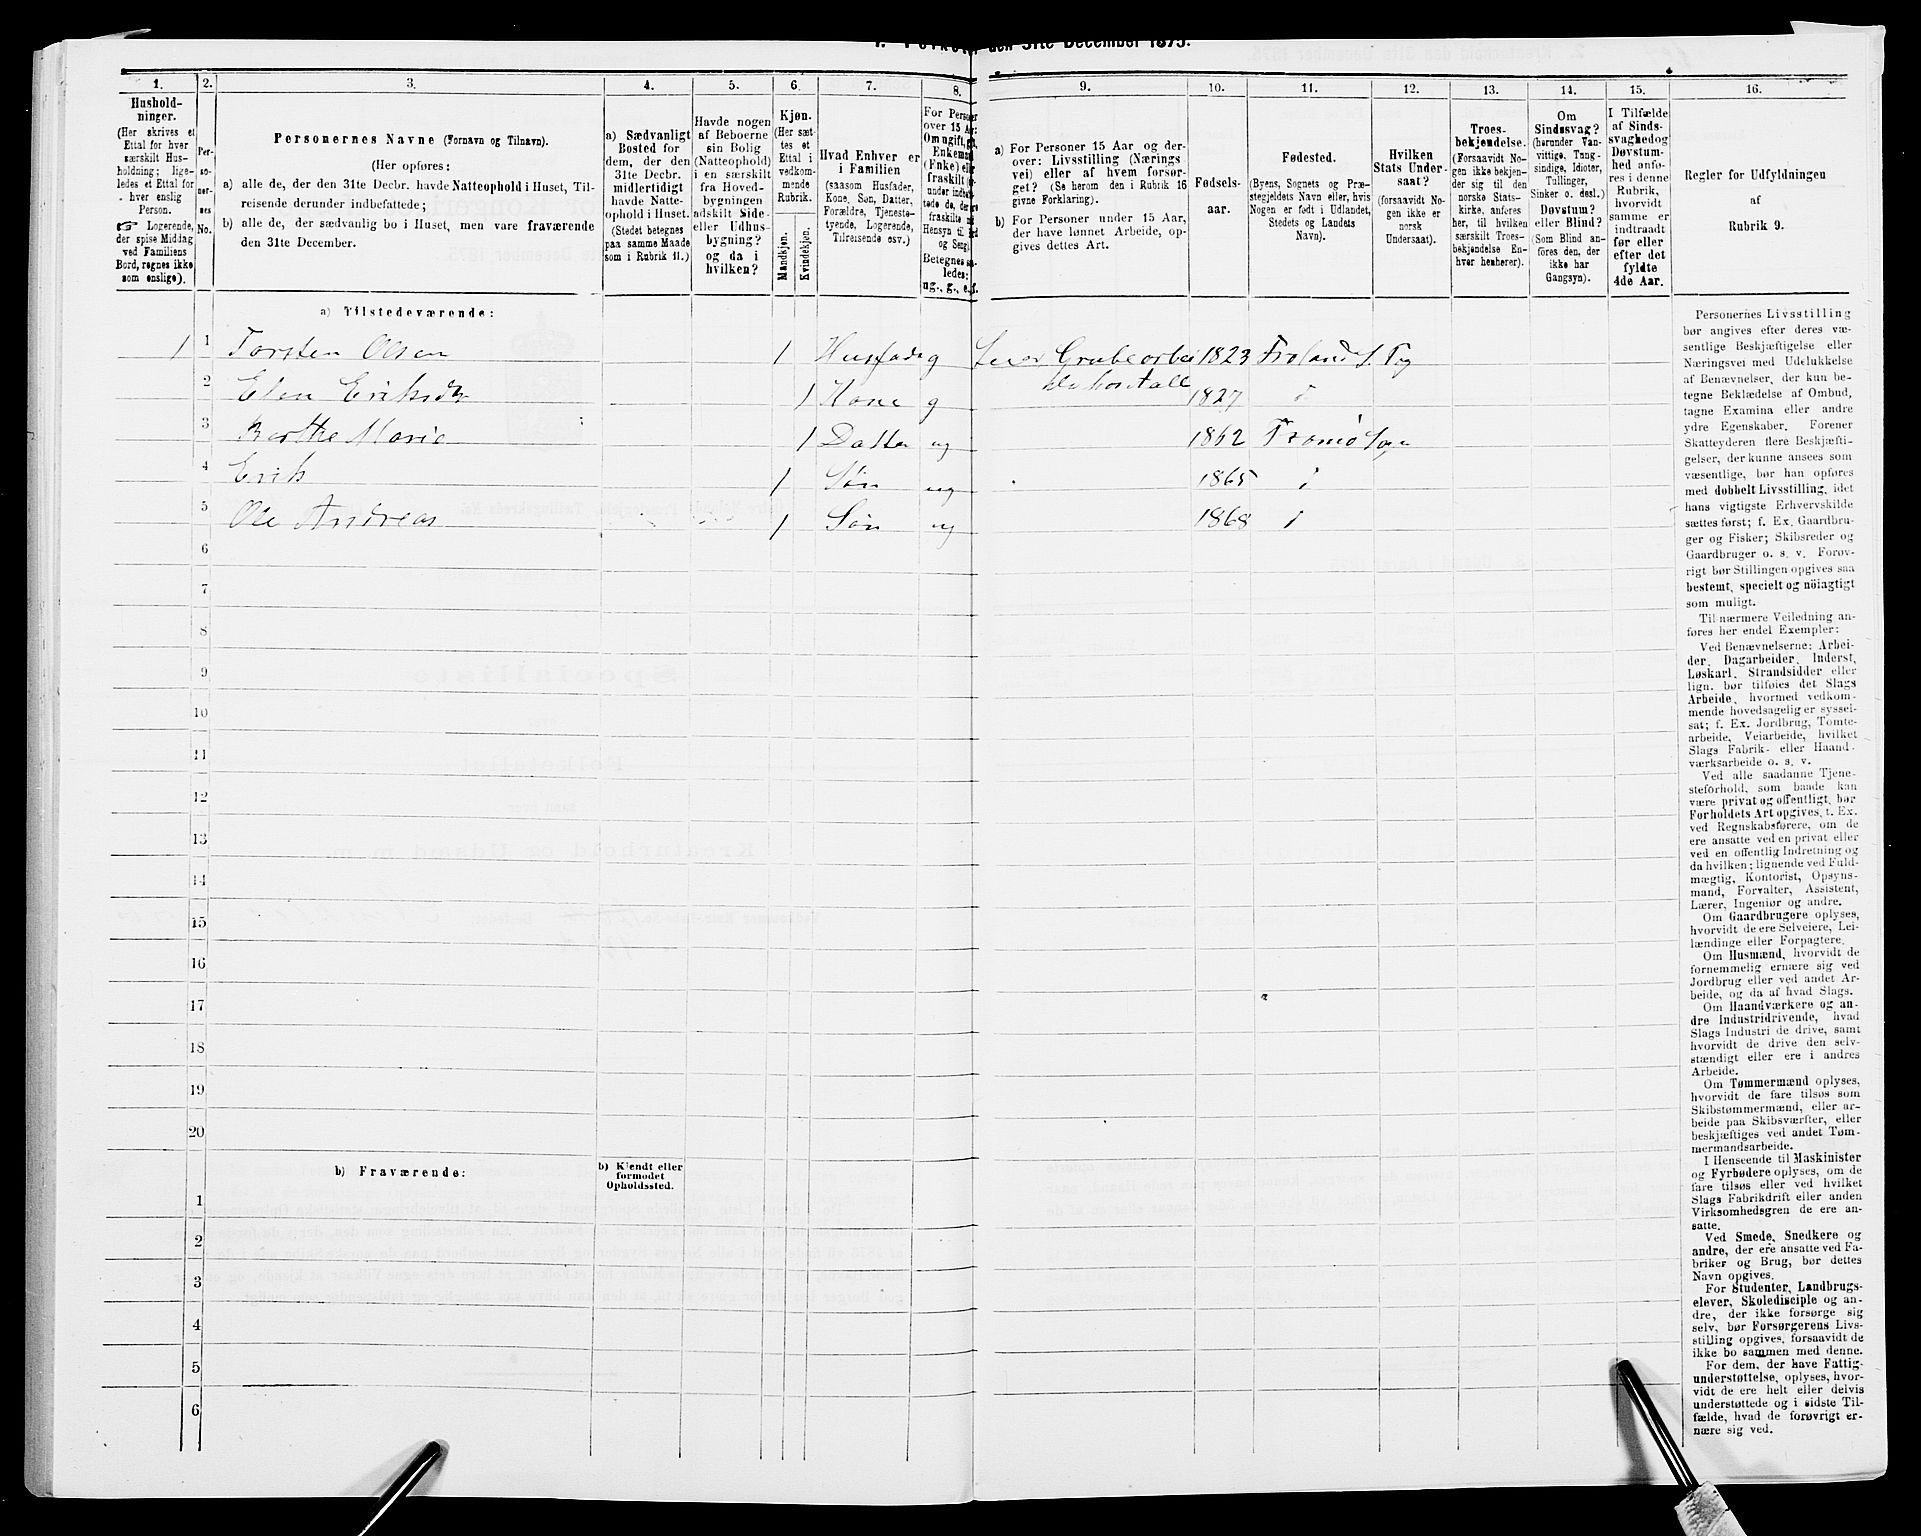 den 31te December 1875.
1. 2. 3. 4. 5. 6. 7. 8. 9. 10. 11. 12. 13. 14. 15. 16.
Hushold-
ninger.
(Her skrives et
Ettal for hver
særskilt Hus-
holdning; lige-
ledes et Ettal for
hver enslig
Person.
☞ Logerende,
der spise Middag
ved Familiens
Bord, regnes ikke
som enslige).
Per-
so-
ner-
nes
No.
Personernes Navne (Fornavn og Tilnavn).
(Her opføres:
a) alle de, der den 31te Decbr. havde Natteophold i Huset, Til-
reisende derunder indbefattede;
b) alle de, der sædvanlig bo i Huset, men vare fraværende
den 31te December.
a) Sædvanligt
Bosted for
dem, der den
31te Decbr.
midlertidigt
havde Natte-
ophold i Huset.
(Stedet betegnes
paa samme Maade
som i Rubrik 11.)
Havde nogen
af Beboerne
sin Bolig
(Natteophold)
i en særskilt
fra Hoved-
bygningen
adskilt Side-
eller Udhus-
bygning?
og da i
hvilken?
Kjøn.
(Her sæt-
tes et
Ettal i
vedkom-
mende
Rubrik.
Mandkjøn.
Kvindekjøn.
Hvad Enhver er
i Familien
(saasom Husfader,
Kone, Søn, Datter,
Forældre, Tjeneste-
tyende, Logerende,
Tilreisende osv.)
For Personer
over 15 Aar:
Om ugift, gift,
Enkemand
(Enke) eller
fraskilt
Betegnes saa-
ledes:
ug., g., e., f.
a) For Personer 15 Aar og der-
over: Livsstilling (Nærings
vei) eller af hvem forsør-
get? (Se herom den i Rubrik 16
givne Forklaring).
b) For Personer under 15 Aar,
der have lønnet Arbeide, op-
gives dettes Art.
Fødsels-
aar.
Fødested.
(Byens, Sognets og Præ-
stegjeldets Navn eller, hvis
Nogen er født i Udlandet,
Stedets og Landets
Navn).
Hvilken
Stats Under-
saat?
(forsaavidt No-
gen ikke er
norsk
Undersaat).
Troes-
bekjendelse.
(Forsaavidt No-
gen ikke bekjen-
der sig til den
norske Stats-
kirke, anføres
her, til hvilken
særskilt Troes-
bekjendelse En-
hver henhører).
Om
Sindssvag?
(herunder Van-
vittige, Tung-
sindige, Idioter,
Tullinger,
Sinker o. desl.)
Døvstum?
eller Blind?
(Som Blind an-
føres den, der
ikke har
Gangsyn).
I Tilfælde
af Sinds-
svaghed og
Døvstum-
hed anfø-
res i denne
Rubrik,
hvorvidt
samme er
indtraadt
før eller
efter det
fyldte
4de Aar.
Regler for Udfyldningen
af
Rubrik 9.
a) Tilstedeværende:
1 1 Torsten Olsen 1 Husfader g 1823
2 Elen Eriksdtr 1 Kone g 1827
3 Berthe Marie 1 Datter ug 1862 Tromø Sogn
4 Erik 1 Søn ug 1865
5 Ole Andreas 1 Søn ug 1868
6
7
8
9
10
11
12
13
14
15
16
17
18
19
20
b) Fraværende:
b) Kjendt eller
formodet
Opholdssted.
1
2
3
4
5
6
Personernes Livsstilling
bør angives efter deres væ-
sentlige Beskjæftigelse eller
Næringsvei med Udelukkelse
af Benævnelser, der kun be-
tegne Beklædelse af Ombud,
tagne Examina eller andre
ydre Egenskaber. Forener
Skatteyderen flere Beskjæfti-
gelser, der kunne ansees som
væsentlige, bør han opføres
med dobbelt Livsstilling, idet
hans vigtigste Erhvervskilde
sættes først; f. Ex. Gaardbru-
ger og Fisker; Skibsreder og
Gaardbruger o. s. v. Forøv-
rigt bør Stillingen opgives saa
bestemt, specielt og nöiagtigt
som muligt.
Til nærmere Veiledning an-
føres her endel Exempler:
Ved Benævnelserne: Arbei-
der, Dagarbeider, Inderst,
Løskarl, Strandsidder eller
lign. bør tilføies det Slags
Arbeide, hvormed vedkom-
mende hovedsagelig er syssel-
sat; f. Ex. Jordbrug, Tomte-
arbeide, Veiarbeide, hvilket
Slags Fabrik- eller Haand-
værksarbeide o. s. v.
Ved alle saadanne Tjene-
steforhold, som baade kan
være privat og offentligt, bør
Forholdets Art opgives, t. Ex.
ved Regnskabsførere, om de
ere ansatte ved en privat eller
ved en offentlig Indretning og
da hvilken; lignende ved Fuld-
mægtig, Kontorist, Opsyns-
mand, Forvalter, Assistent,
Lærer, Ingeniør og andre.
Om Gaardbrugere oplyses,
hvorvidt de ere Selveiere, Lei-
lændinge eller Forpagtere.
Om Husmænd, hvorvidt de
fornemmelig ernære sig ved
Jordbrug eller ved andet Ar-
beide, og da af hvad Slags.
Om Haandværkere og an-
dre Industridrivende, hvad
Slags Industri de drive, samt
hvorvidt de drive den selv-
stændigt eller ere i andres
Arbeide.
Om Tømmermænd oplyses,
hvorvidt de fare tilsøs som
Skibstømmermænd, eller ar-
beide paa Skibsværfter, eller
beskjæftiges ved andet Tøm-
mermandsarbeide.
I Henseende til Maskinister
og Fyrbødere oplyses, om de
fare tilsøs eller ved hvilket
Slags Fabrikdrift eller anden
Virksomhedsgren de ere an-
satte.
Ved Smede, Snedkere og
andre, der ere ansatte ved Fa-
briker og Brug, bør dettes
Navn opgives.
For Studenter, Landbrugs-
elever, Skoledisciple og an-
dre, der ikke forsørge sig
selv, bør Forsørgerens Livs-
stilling opgives, forsaavidt de
ikke bo sammen med denne.
For dem, der have Fattig-
understøttelse, oplyses, hvor-
vidt de ere helt eller delvis
understøttede og i sidste Til-
fælde, hvad de forøvrigt er-
nære sig ved.